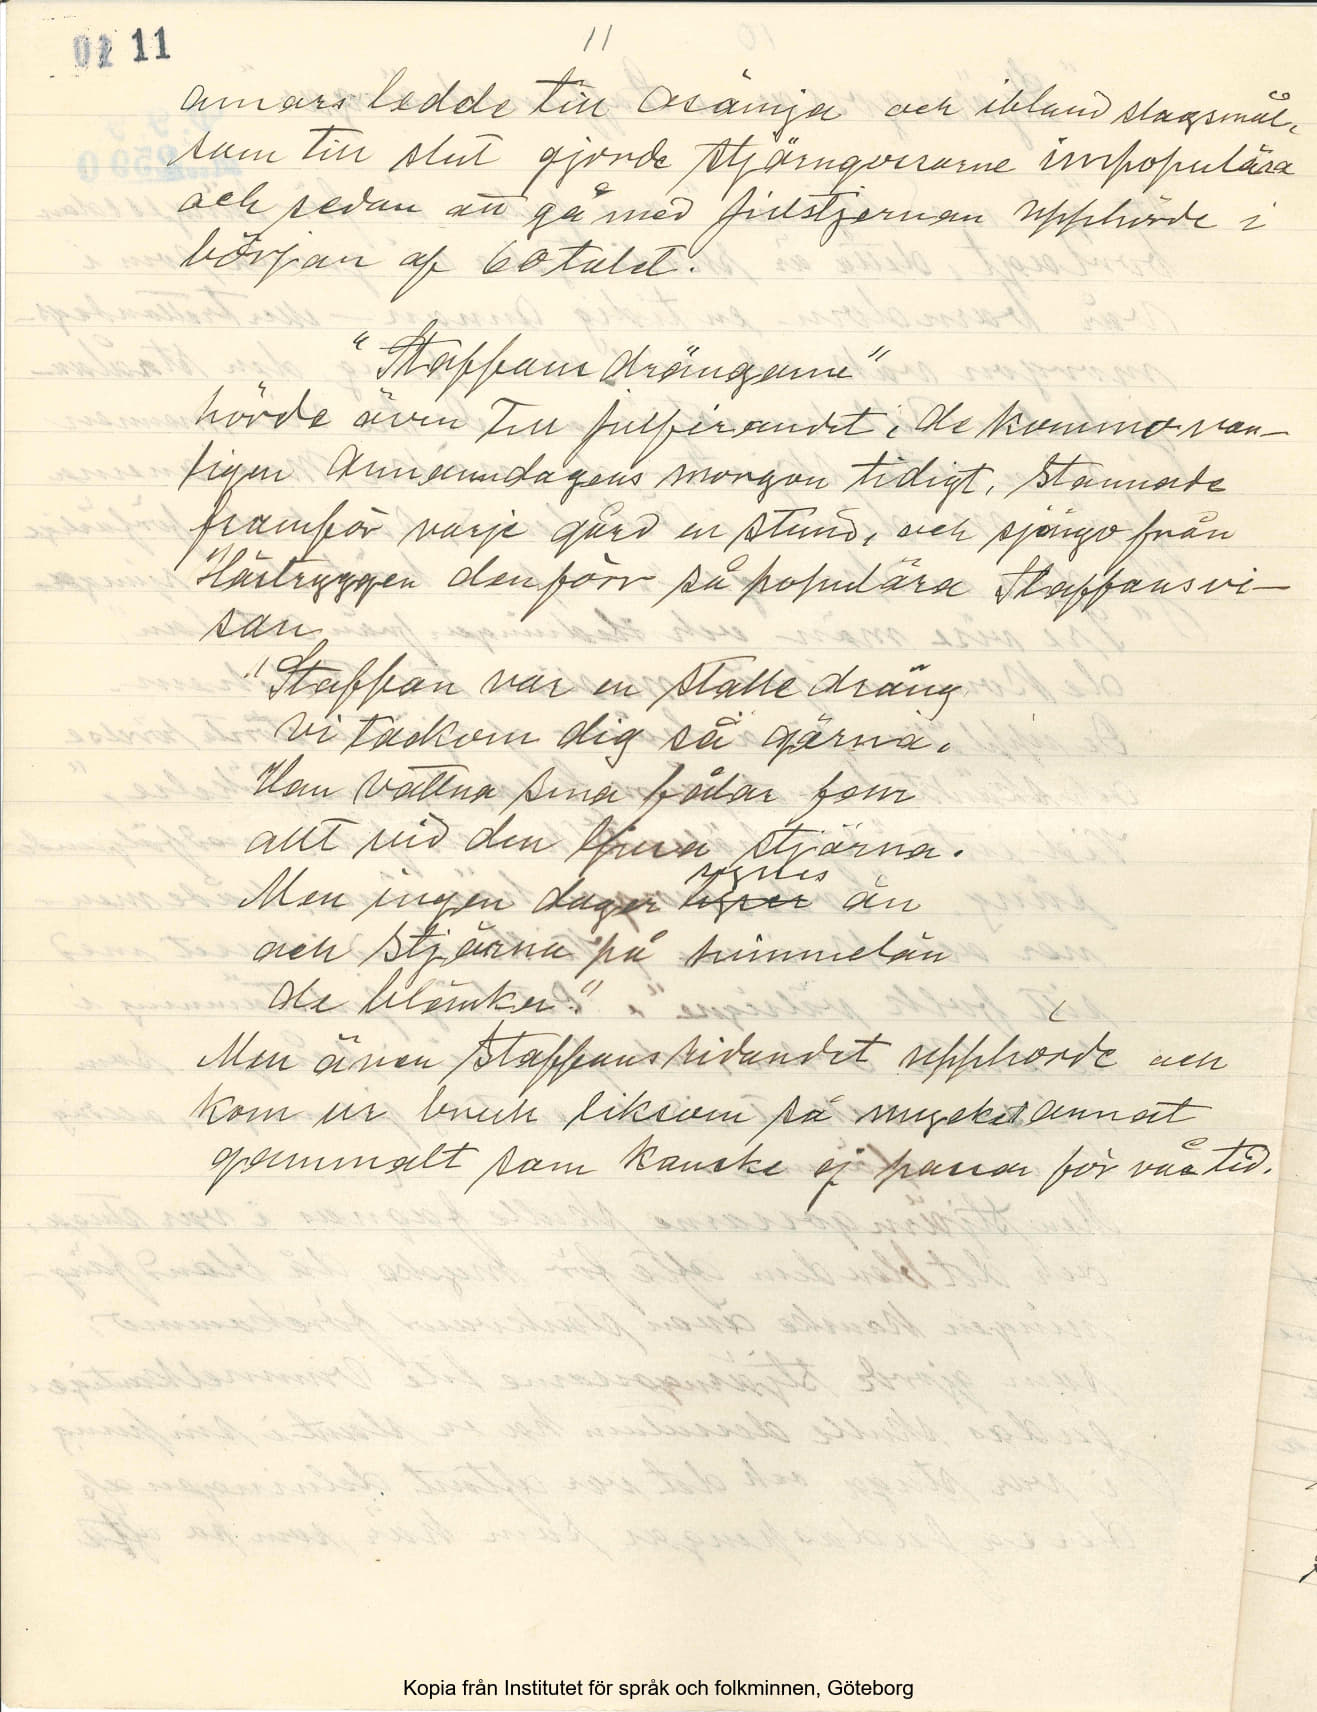 11
11
annars ledde till osämja och ibland slagsmål,
som till slut gjorde stjärngossarne impopulära
och sedan att gå med julstjernan upphörde i
början af 60 talet.
"Staffans drängarne"
hörde även till julfirandet, de kommo van-
ligen Annanndagens morgon tidigt, stannade
framför varje gård en stund, och sjöngo från
Hästryggen den förr så populära Staffansvi-
san
"Staffan var en stalle dräng
vi tackom dig så gärna,
Han vattna sina fålar fem
allt vid den ljusa stjärna.
synes
Men ingen dager lyser än
och stjärna på himmelän
de blänker"
Men även Staffansridandet upphörde och
kom ur bruk liksom så mycket annat
gammalt som kanske ej passar för vår tid.
Kopia från Institutet för språk och folkminnen, Göteborg